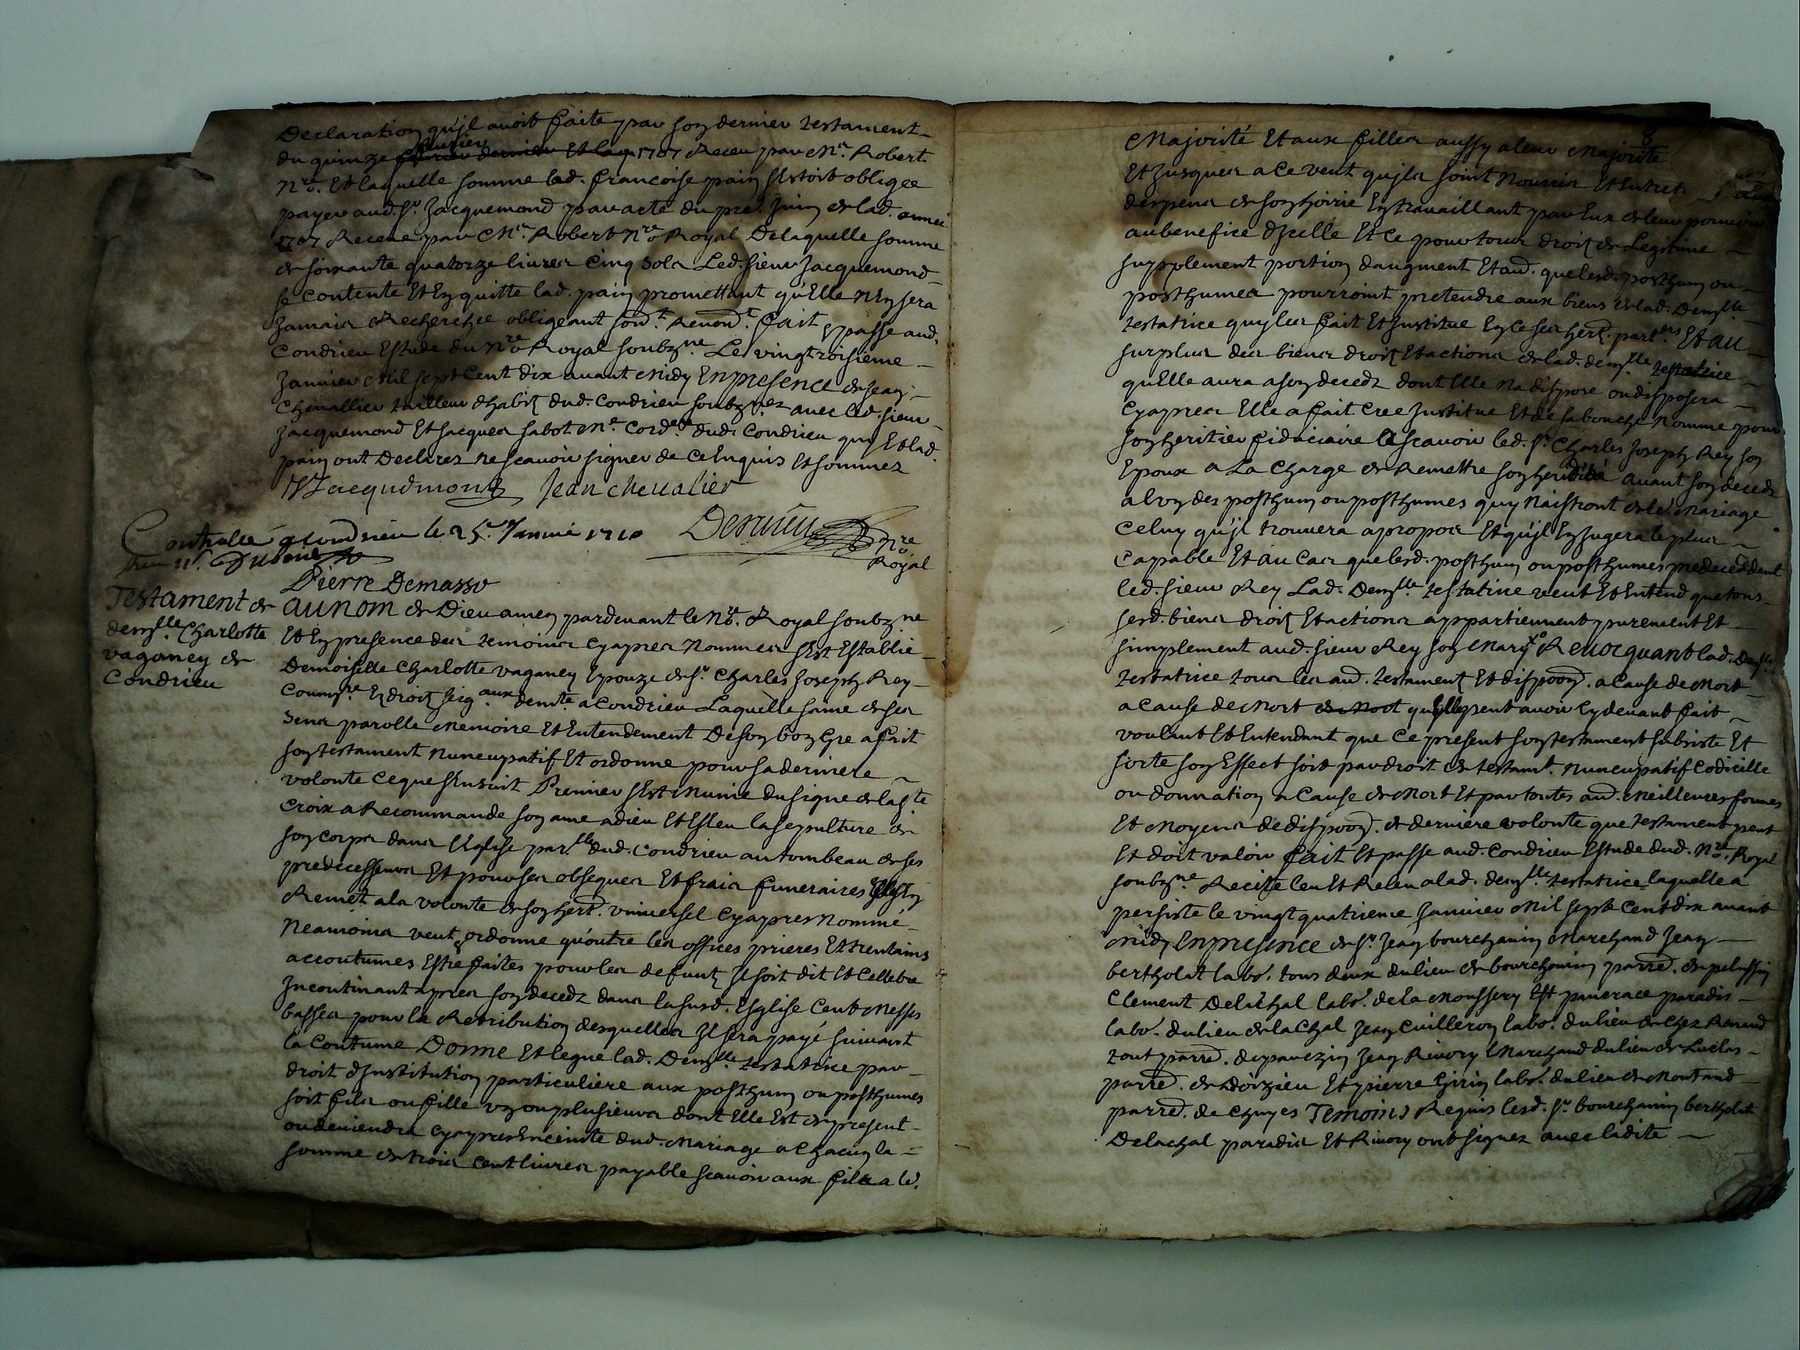 Declaration qu'jl avoit faite par son dernier testament
du quinze fevrier 1707 Receu par Me. Robert
Nre. Et laquelle somme led. francoise pain s'Estoit obligee
payer aud. Sr. Jacquemond par acte du pre. Juin de lad. année
1707 Receue par Me. Robert Nre Royal De laquelle somme
de soixante quatorze livres Cinq sols Led. sieur Jacquemond
se contente Et En quitte lad. pain promettant qu'Elle n'En sera
Jamais Recherchée obligeant sond.t Renond.t fait & passe aud.
Condrieu Estude du Nre Royal soubzne. Le vingt troisieme
Janvier Mil sept Cent dix avant Midy En presence de Jean
Chevallier tailleur d'habit dud. Condrieu soubznez avec led. sieur
Jacquemond Et Jacques sabot Me. Cord.er dud. Condrieu quy Et lad.
pain ont Declarez ne scavoir signer de ce Enquis Et sommez
Jacquemond Jean Chevalier
Controllé a Condrieu le 25e. Janvié 1710
Nre
Royal
Pierre Demasso
Testament de
demslle. Charlotte
vaganey de
Condrieu
AU NOM de Dieu amen pardevant le Nre. Royal soubzne
Et En presence des temoins Cyapres Nommes s'Est Establie
Demoiselle Charlotte vaganey Epouze de Sr. Charles Joseph Rey
Commre. Edroit seig.aux demte. a Condrieu Laquelle saine de ses
sens parolle Memoire Et Entendement De son bon Gre a fait
son testament Nuncupatif Et ordonne pour sa derniere
volonte ce que s'Ensuit Premier s'Est Munie du signe de la Ste
Croix a Recommande son ame a dieu Et Esleu la sepulture de
son corps dans l'Eglise par.lle dud. Condrieu au tombeau de ses
predecesseurs Et pour ses obseques Et frais funeraires
Remet a la volonte de son hert. universel Cyapres Nommé
Neamoins veut & ordonne qu'outre les offices prieres Et trentains
accoutumes Estre faites pour les defunt Jl soit dit Et Cellebre
Jncontinant apres son decedz dans la susd. Esglise Cent Messes
basses pour la Retribution desquelles Jl sera payé suivant
la Coutume Donne Et legue lad. Demslle. testatrice par
droit d'Jnstitution particuliere aux posthum ou posthumes
soit fils ou fille un ou plusieurs dont Elle Est de present
ou deviendra Cyapres Enceinte dud. Mariage a Chacun la
somme de trois Cent livres payable scavoir aux fils a le.
8
Majorité Et aux filles aussy a leur Majorité
Et Jusques a Ce veut qu'jls soint Nourris Et Entret
despens de son hoirie En travaillant par Eux de leur pouvoir
au benefice d'Jcelle Et Ce pour tous droit de Legitime
supplement portion d'augment Et aud. que lesd. posthum ou
posthumes pourroint pretendre aux biens de lad. Demslle.
testatrice quy les fait Et Jnstitue En Ce ses hert. part.ers Et au
surplus des biens droit Et actions de lad. demslle. testatrice
qu'Elle aura a son decedz dont Elle N'a dispose ou disposera
Cyapres Elle a fait Cree Jnstitue Et de sa bouche Nomme pour
son heritier fiduciaire scavoir led. Sr. Charles Joseph Rey son
Epoux a La Charge de Remettre son heridité avant son decedz
a l'un des posthum ou posthumes quy Naistront de le Mariage
Celuy qu'jl trouvera a propos Et qu'jl En Jugera le plus
Capable Et au Cas que lesd. posthum ou posthumes predecedent
led. sieur Rey Lad. Demslle. testatrice veut Et Entend que tous
sesd. biens droit Et actions appartiennent purement Et
simplement aud. sieur Rey son Mary Revocquant lad. Demslle.
testatrice tous les aud. testament Et dispoon. a Cause de Mort
a Cause de Mort qu'Elle peut avoir Cydevant fait
voulant Et Entendant que Ce present son testament subsiste Et
sorte son Effect soit par droit de testamt. Nuncupatif Codicille
ou donnation a Cause de Mort Et par toutes aud. Meilleures formes
Et Moyens de dispoon. de derniere volonte que testament peut
Et doit valoir fait Et passe aud. Condrieu Estude dud. Nre. Royal
soubzne. Recité leu Et Releu a lad. demslle. testatrice laquelle a
persiste le vingt quatrieme Janvier Mil sept Cent dix avant
Midy En presence de Sr. Jean bourchanin Marchand Jean
bertholat labo. tous deux du lieu de bourchanin parre. de pelussin
Clement Delachal labo. de la Moussery Est panerace paradis
labo. du lieu de la Chal Jean Cuilleron labo. du lieu de Chez Renaud
tout parre. de pavezin Jean Rivory Marchand du lieu de Luclas
parre. de Doizieu Et pierre Girin labo. du lieu de Montaud
parre. de Chuyes Temoins Requis lesd. Sr. bourchanin bertholat
Delachal paradis Et Rivory ont signez avec ladite